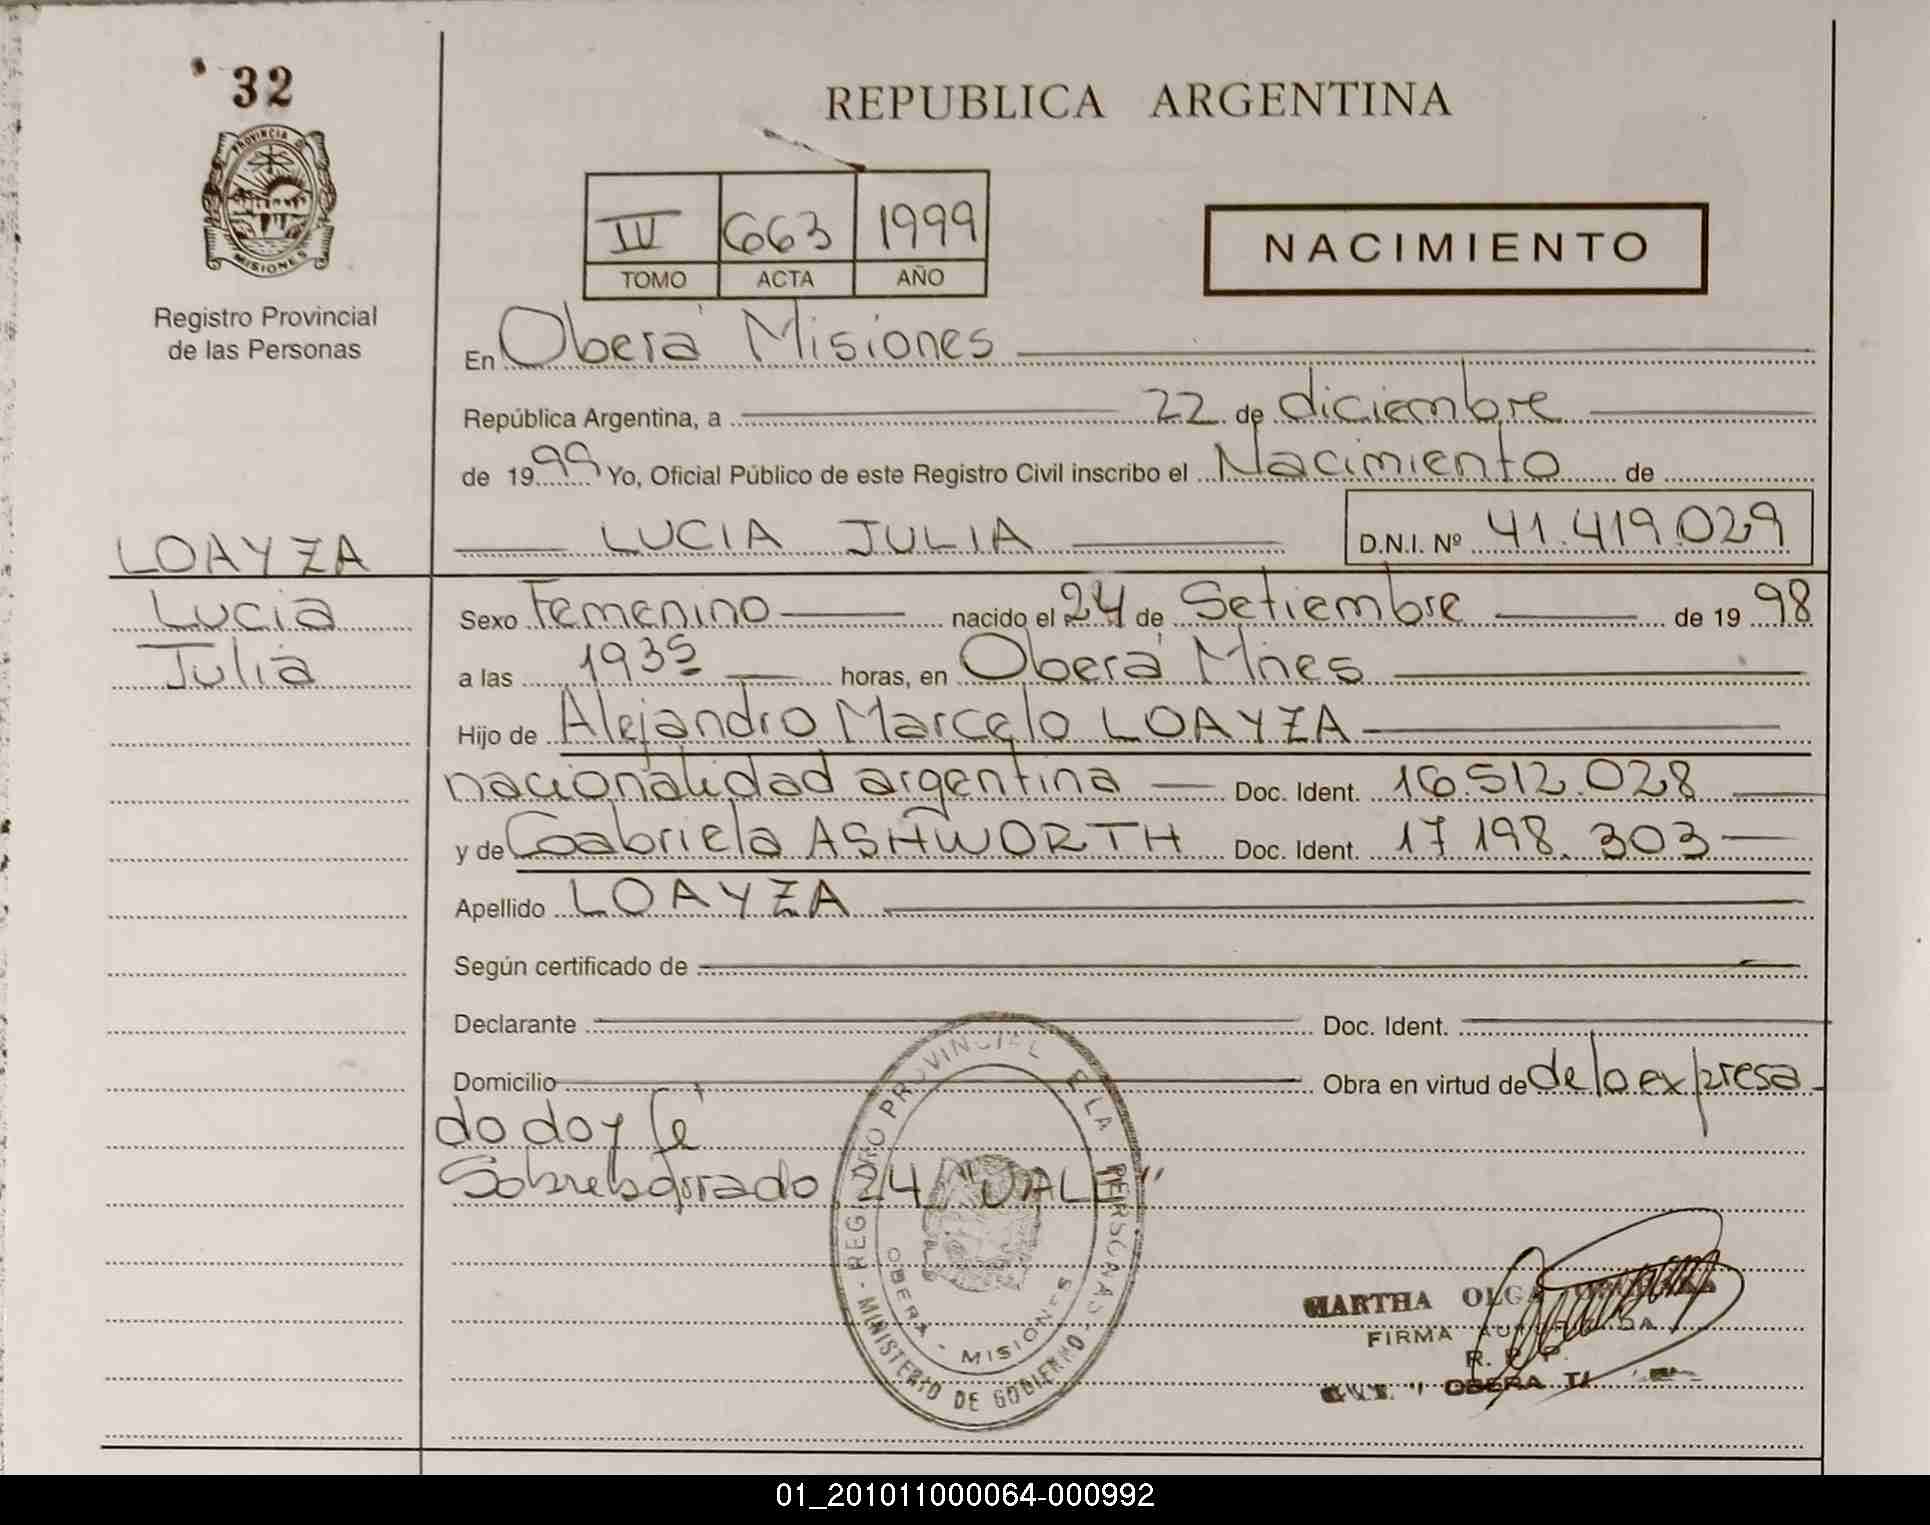 32
PROVINCIA D
MISIONES
Registro Provincial
de las Personas
REPUBLICA ARGENTINA
IV 663 1999
TOMO ACTA AÑO
NACIMIENTO
En Oberá Misiones
República Argentina, a 22 de diciembre
de 1999 Yo, Oficial Público de este Registro Civil inscribo el Nacimiento de
LUCIA JULIA D.N.I. Nº 41.419.029
LOAYZA
Lucia
Julia
Sexo Femenino nacido el 24 de Setiembre de 1998
a las 1935 horas, en Oberá Mnes
Hijo de Alejandro Marcelo LOAYZA
nacionalidad argentina Doc. Ident. 16.512.028
y de Gabriela ASHWORTH Doc. Ident. 17 198. 303
Apellido LOAYZA
Según certificado de
Declarante Doc. Ident.
Domicilio Obra en virtud de de lo expresa
do doy fé
Sobreborrado 24 "VALE"
REGISTRO PROVINCIAL E LA PERSONAS - MINISTERIO DE GOBIERNO -
OBERA - MISIONES
MARTHA OLGA
FIRMA AUTORIZADA
R. P. P.
OBERA
01_201011000064-000992